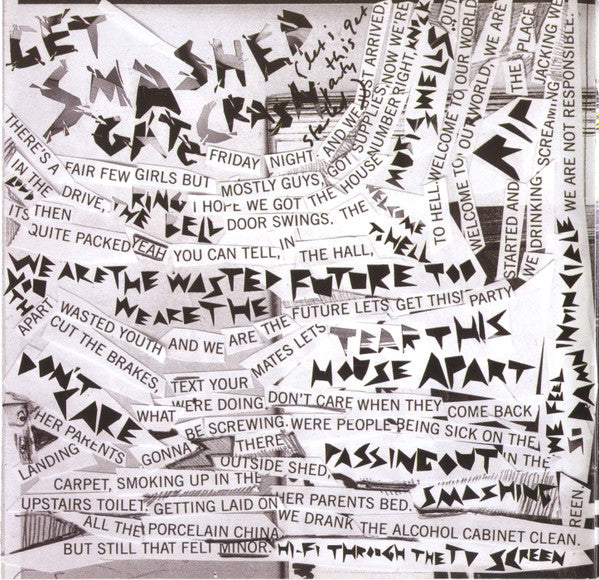 GET
SMASHED
GATE
CRASH
(let's get
this
party
started)
FRIDAY NIGHT AND WE JUST ARRIVED
THERE'S A FAIR FEW GIRLS BUT MOSTLY GUYS, GOT SUPPLIES, NOW WE'RE
IN THE DRIVE, I HOPE WE GOT THE HOUSE NUMBER RIGHT, KNOCK
THE
RING
THE BELL
DOOR SWINGS. THE
MUSIC SWELLS, OUT
ITS THEN
QUITE PACKED YEAH YOU CAN TELL, IN THE HALL,
TO HELL WELCOME TO OUR WORLD
WELCOME TO OUR WORLD, WE ARE
THE PLACE,
STARTED AND
WE DRINKING, SCREAMING, JACKING WE
WE ARE NOT RESPONSIBLE.
WE ARE THE WASTED FUTURE TOO
WE ARE THE
FUTURE LETS GET THIS PARTY
WASTED YOUTH AND WE ARE THE
APART
CUT THE BRAKES,
TEXT YOUR MATES LETS
TEAR THIS
HOUSE APART
DON'T
CARE
WHAT WERE DOING DON'T CARE WHEN THEY COME BACK
WE FEEL
SO DAMN INVINCIBLE
HER PARENTS GONNA BE SCREWING. WERE PEOPLE BEING SICK ON THE
LANDING THERE
OUTSIDE SHED,
PASSING OUT IN THE
CARPET, SMOKING UP IN THE
SMASHING
UPSTAIRS TOILET, GETTING LAID ON HER PARENTS BED.
ALL THE PORCELAIN CHINA, WE DRANK THE ALCOHOL CABINET CLEAN.
BUT STILL THAT FELT MINOR.
HI-FI THROUGH THE TV SCREEN